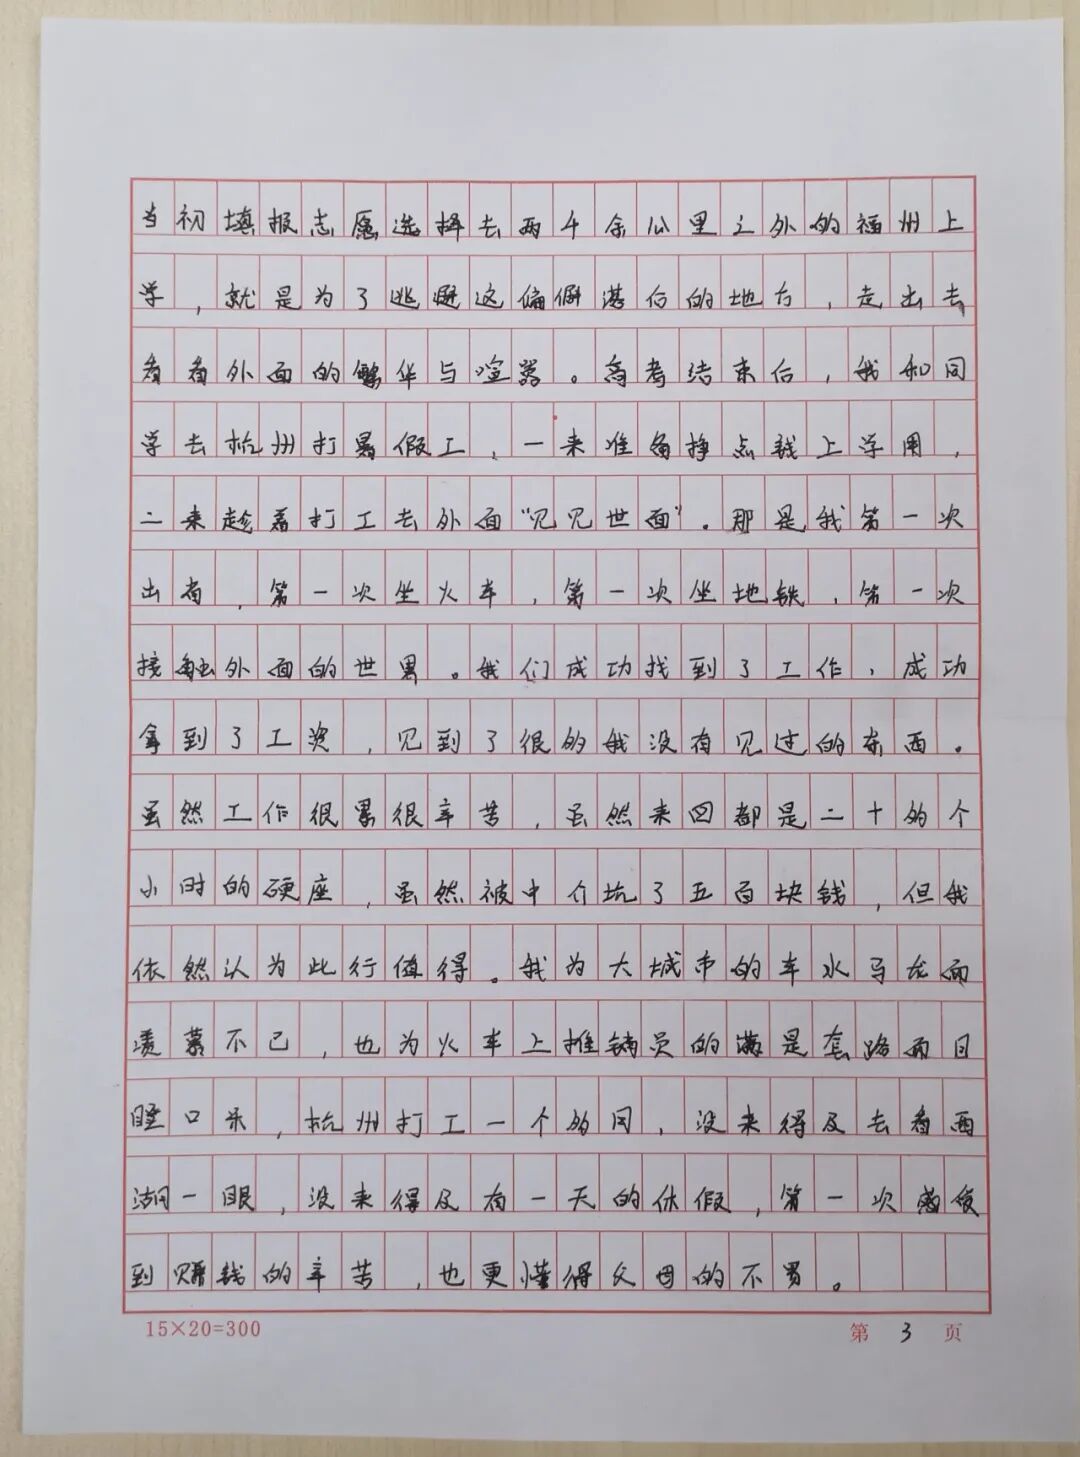 当初填报志愿选择去两千余公里之外的福州上
学，就是为了逃避这偏僻落后的地方，走出去
看看外面的繁华与喧嚣。高考结束后，我和同
学去杭州打暑假工，一来准备挣点钱上学用，
二来趁着打工去外面“见见世面”。那是我第一次
出省，第一次坐火车，第一次坐地铁，第一次
接触外面的世界。我们成功找到了工作，成功
拿到了工资，见到了很多我没有见过的东西。
虽然工作很累很辛苦，虽然来回都是二十多个
小时的硬座，虽然被中介坑了五百块钱，但我
依然认为此行值得。我为大城市的车水马龙而
羡慕不已，也为火车上推销员的满是套路而目
瞪口呆，杭州打工一个多月，没来得及去看西
湖一眼，没来得及有一天的休假，第一次感受
到赚钱的辛苦，也更懂得父母的不易。
15×20=300
第 3 页